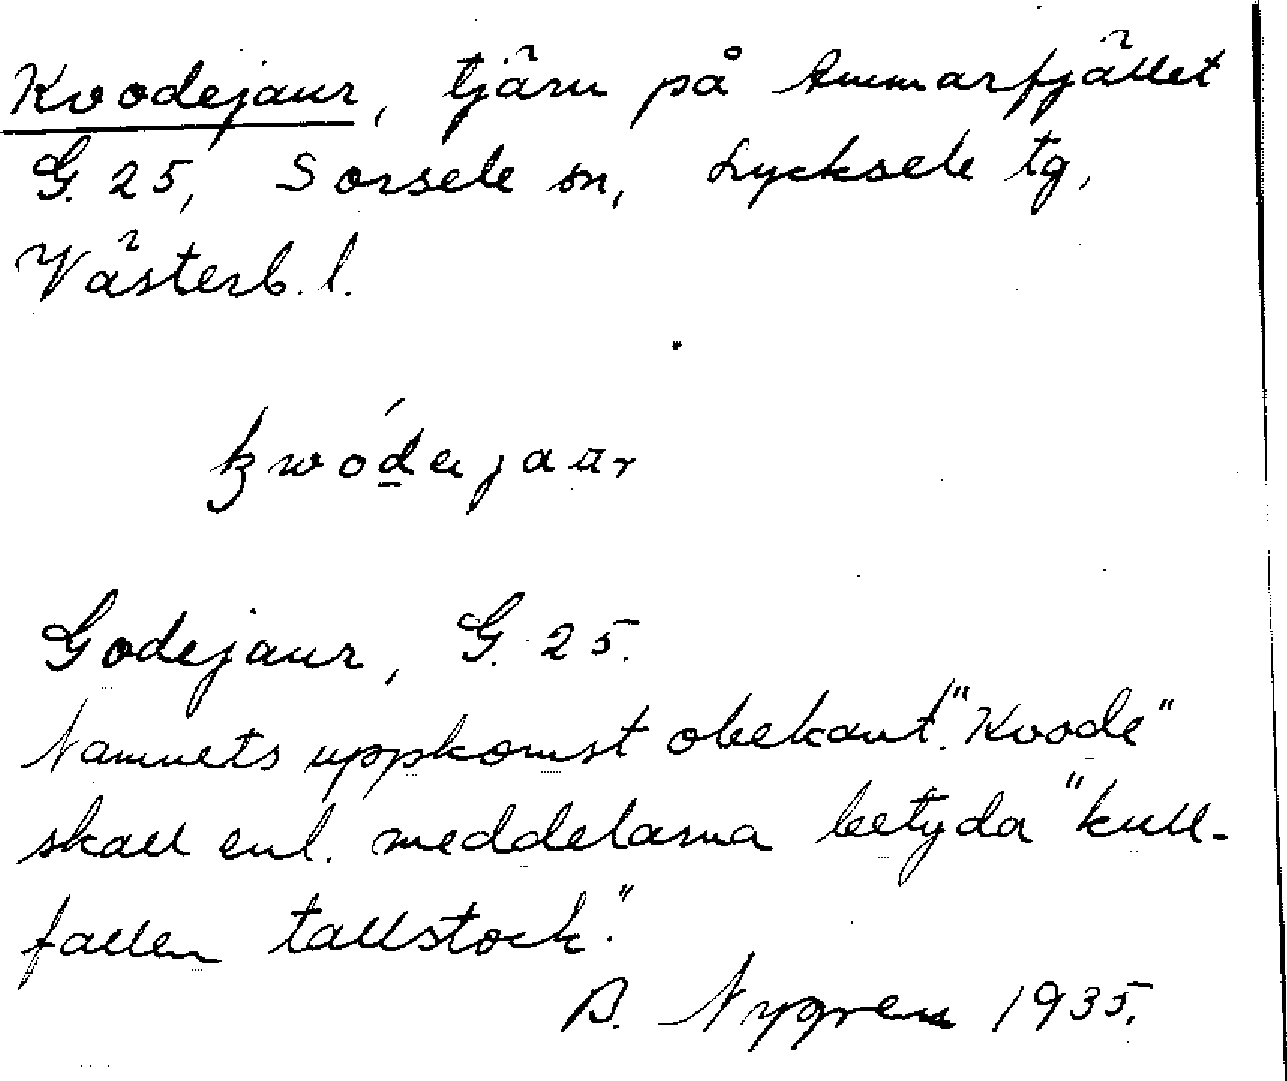 Kvodejaur, tjärn på Ammarfjället
G. 25, Sorsele sn, Lycksele tg,
Västerb. l.
kwódejaur
Godejaur, G. 25.
Namnets uppkomst obekant. "Kvode"
skall enl. meddelarna betyda "kull-
fallen tallstock".
B. Nygren 1935.